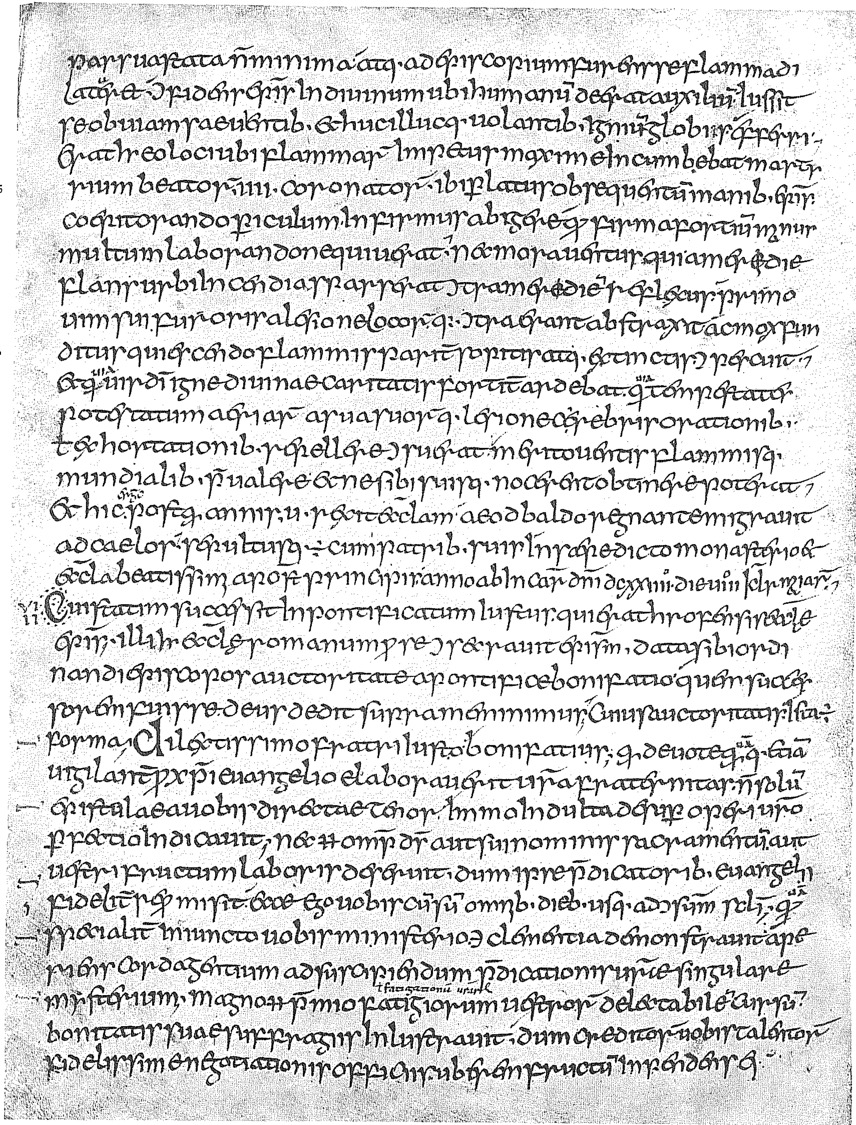 pars uastata n̄ minima. atq· ad episcopium furens se flamma di
lataret. ɔfidens ep̄s In diuinum ubi humanū deerat auxiliū. Iussit
se obuiam saeuientib· & huc illucq· uolantib· Igniū globis efferri·,
Erat h eo loci ubi flammar̄ Impetus maxime Incumbebat martyr
rium beator̄· iiii· coronator̄· ibi p̱latus obsequentū manib· ep̄s
coepit orando p̱iculum Infirmus abigere quod firma fortiū manus
multum laborando nequiuerat· nec mora uentus qui a meridie
flans urbi Incendia sparserat ɔtra meridiē reflexus· primo
uim sui furoris a lesione locor̄ q: ɔtra erant abstraxit ac mox fun
ditus quiescendo flammis parit̄ sopitis atq· extinctis ɔpescuit·,
et quia uir dī igne diuinae caritatis fortit̄ ardebat. quia tempestates
potestatum aeriar̄ a sua suorūq· lesione crebris orationib·
ł exhortationib· repellere ɔsuerat merito uentis flammisq·
mundialib· p̄ualere et ne sibi suisq· nocerent obtinere poterat·,
Et hic ergo postq· annis· u· rexit eccl̄am aeodbaldo regnante migrauit
ad caelos· sepultusq· ÷ cum patrib· suis In saepedicto monasterio &
eccl̄a beatissimi apost̄ principis anno ab Incar̄ dn̄i dcxxiiii· die uiii kl̄ maiar̄·,
uiii Cui statim successit In pontificatum Iustus· qui erat hrofensis eccl̄e
ep̄s· illi h eccl̄e romanum p̱ se ɔsecrauit ep̄m. data sibi ordi
nandi episcopos auctoritate a pontifice bonifatio quem succes
sorem fuisse deusdedit supra meminimus· Cuius auctoritatis Ista ÷
forma, Dilectissimo fratri Iusto bonifatius· q· deuote quāq· etiā
uigilant̄ p̱ xp̄i euangelio elaborauerit ur̄a fraternitas n̄ solū
epistulae a uobis directae tenor. Immo Indulta desup̱ operi ur̄o
p̱fectio Indicauit, nec ħ omp̄ ds̄ aut sui nominis sacramentū aut
uestri fructum laboris deseruit. dum ipse p̄dicatorib· euangelii
fidelit̄ p̱misit. ecce ego uobiscū sū omib· dieb· usq· ad ɔsūm sc̄li· quod
specialit̄ Iniuncto uobis ministerio clementia demonstrauit ape
riens corda gentium ad suscipiendum p̄dicationis ur̄e singulare
misterium. magno ħ p̄mio fatigiorum uestror̄ delectabilē cursū
ł fatigationū ur̄ar̄
bonitatis suae suffragiis Inlustrauit, dum creditor̄ uobis talentor̄
fidelissime negotiationis officiis uberem fructū Inpendens ei